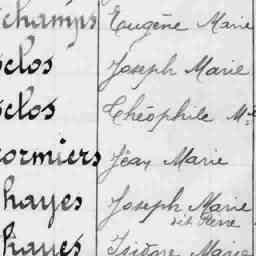 champs Eugène Marie
clos Joseph Marie
clos Théophile Mie
cormiers Jean Marie
hayes Joseph Marie
dit Pierre
hayes Isidore Marie